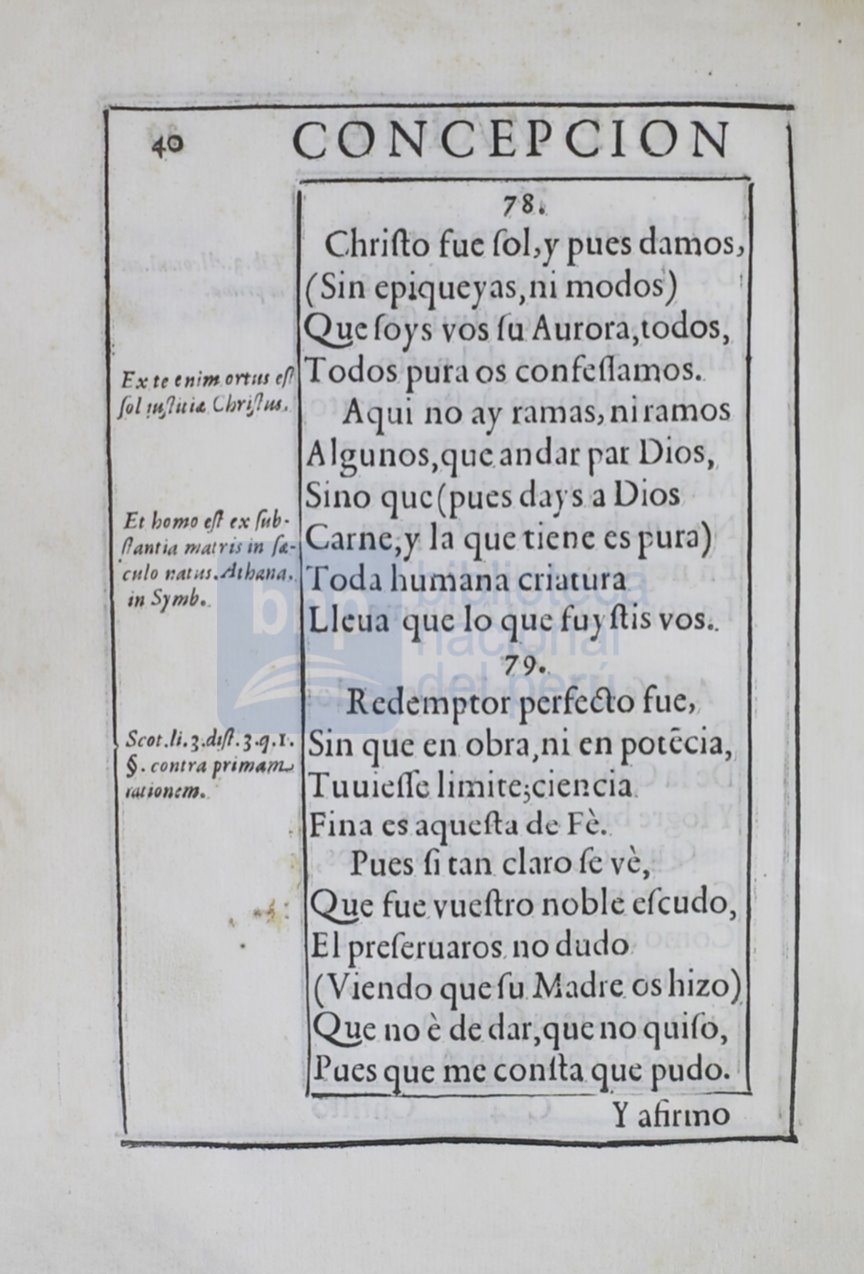 40 CONCEPCION
78.
Chriſto fue ſol, y pues damos,
(Sin epiqueyas, ni modos)
Que ſoys vos ſu Aurora, todos,
Todos pura os confeſſamos.
Aqui no ay ramas, ni ramos
Algunos, que andar par Dios,
Sino que (pues days a Dios
Carne, y la que tiene es pura)
Toda humana criatura
Lleua que lo que fuyſtis vos.
79.
Redemptor perfecto fue,
Sin que en obra, ni en potẽcia,
Tuuieſſe limite; ciencia
Fina es aqueſta de Fè.
Pues ſi tan claro ſe vè,
Que fue vueſtro noble eſcudo,
El preſeruaros no dudo
(Viendo que ſu Madre os hizo)
Que no è de dar, que no quiſo,
Pues que me conſta que pudo.
Y afirmo
Ex te enim ortus eſt
ſol iuſtitiæ Chriſtus.
Et homo eſt ex ſub-
ſtantia matris in ſæ-
culo natus. Athana.
in Symb.
Scot. li. 3. diſt. 3. q. 1.
§. contra primam
rationem.
bnp biblioteca
nacional
del perú